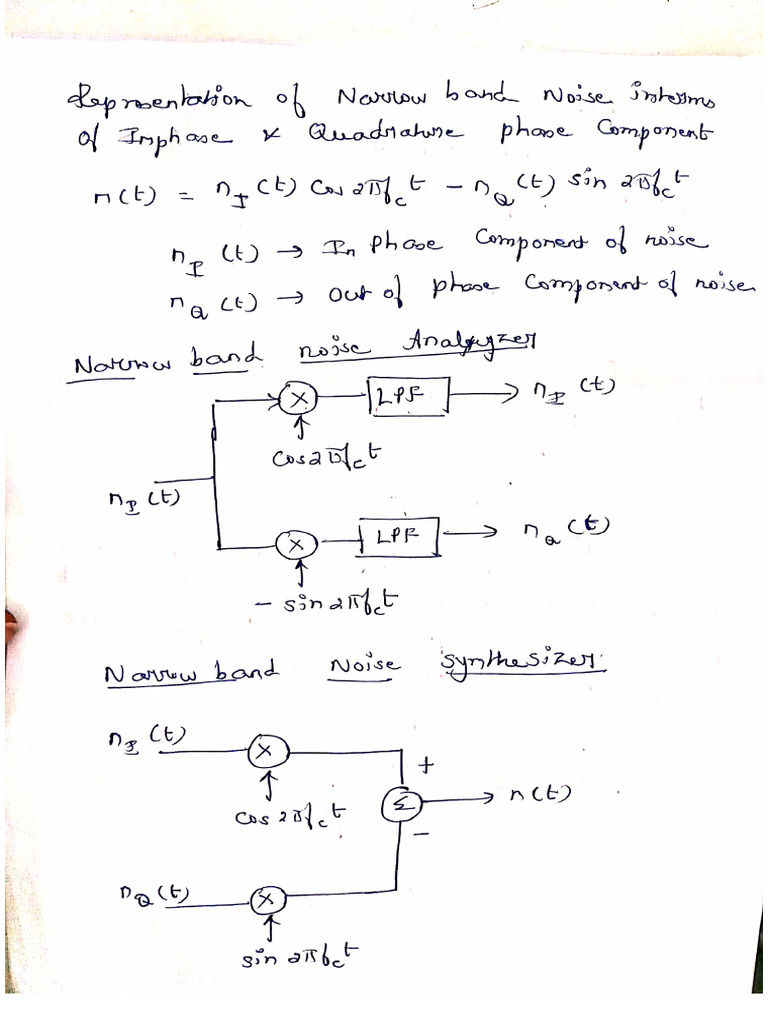 Representation of Narrow band Noise interms
of Inphase & Quadrature phase Component
n(t) = n_I(t) Cos 2πf_c t - n_Q(t) sin 2πf_c t
n_I(t) → In phase Component of noise
n_Q(t) → out of phase Component of noise
Narrow band noise Analyzer
X LPF → n_I(t)
cos 2πf_c t
n_I(t)
X LPF → n_Q(t)
- sin 2πf_c t
Narrow band Noise synthesizer
n_I(t) X
+
cos 2πf_c t Σ → n(t)
-
n_Q(t) X
sin 2πf_c t